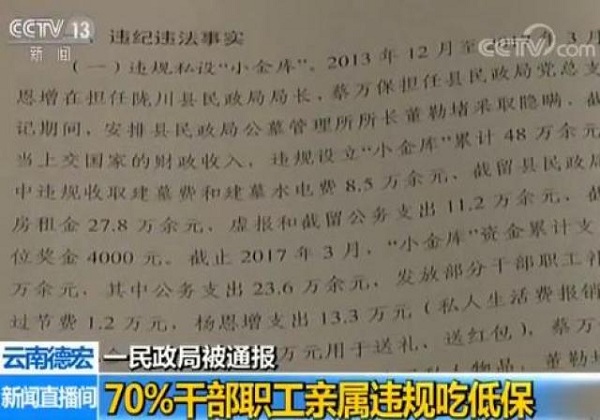 CCTV 13
新闻
CCTV.com
、违纪违法事实
（一）违规私设“小金库”。2013 年 12 月至 2017 年 3 月
恩增在担任陇川县民政局局长、蔡万保担任县民政局党总支
记期间，安排县民政局公墓管理所所长董勒堵采取隐瞒、截
当上交国家的财政收入，违规设立“小金库”累计 48 万余元
中违规收取建墓费和建墓水电费 8.5 万余元、截留县民政局
房租金 27.8 万余元、虚报和截留公务支出 11.2 万余元、
位奖金 4000 元。截止 2017 年 3 月，“小金库”资金累计支
万余元，其中公务支出 23.6 万余元，发放部分干部职工
过节费 1.2 万元，杨恩增支出 13.3 万元（私人生活费报销
万元用于送礼、送红包）、蔡万
私人物品，董勒堵
云南德宏
一民政局被通报
新闻直播间
70%干部职工亲属违规吃低保